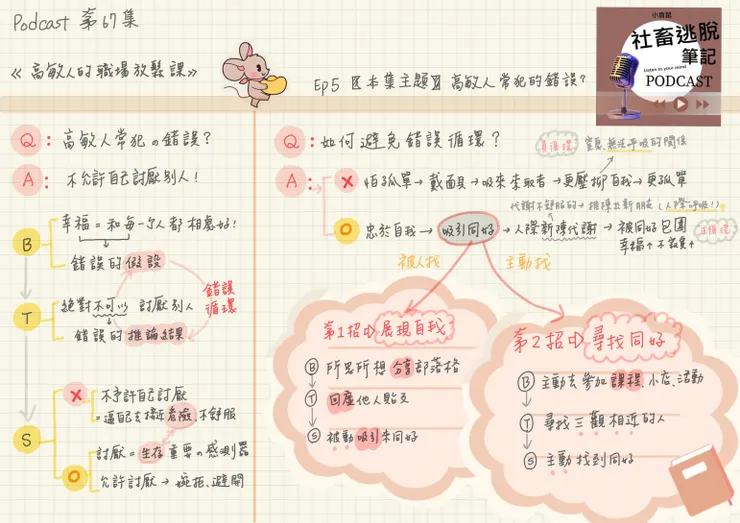 Podcast 第67集
《高敏人的職場放鬆課》
Ep5 〖本集主題〗高敏人常犯的錯誤?
小倉鼠
社畜逃脫
筆記
Listen to your mind
PODCAST
Q: 高敏人常犯の錯誤?
A: 不允許自己討厭別人!
B 幸福=和每一個人都相處好!
錯誤的假設
T 絕對不可以 討厭別人
錯誤的推論結果
錯誤
循環
S
X 不予許自己討厭
=逼自己去接近危險 不舒服
O 討厭=生存重要の感測器
允許討厭→婉拒、避開
Q: 如何避免錯誤循環?
負循環 窒息、無法呼吸的關係
A: X 怕孤單→戴面具→吸來索取者→更壓抑自我→更孤單
代謝不舒服的→推陳出新朋友(人際呼吸!)
O 忠於自我→吸引同好→人際新陳代謝→被同好包圍
幸福↑ 不寂寞↑
正循環
被人找
主動找
第1招 展現自我
B 所見所想 分享部落格
T 回應他人貼文
S 被動吸引來同好
第2招 尋找同好
B 主動去參加課程、小店、活動
T 尋找三觀相近的人
S 主動找到同好